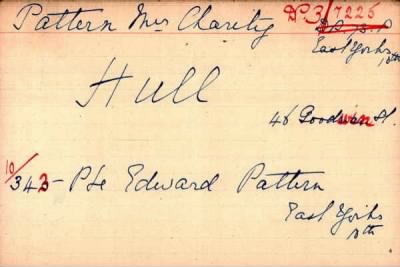 Pattern Mrs Charity D.P.3/7225
East Yorks 10th
Hull
46 Goodwin St.
10/343 - Pte Edward Pattern
East Yorks
10th